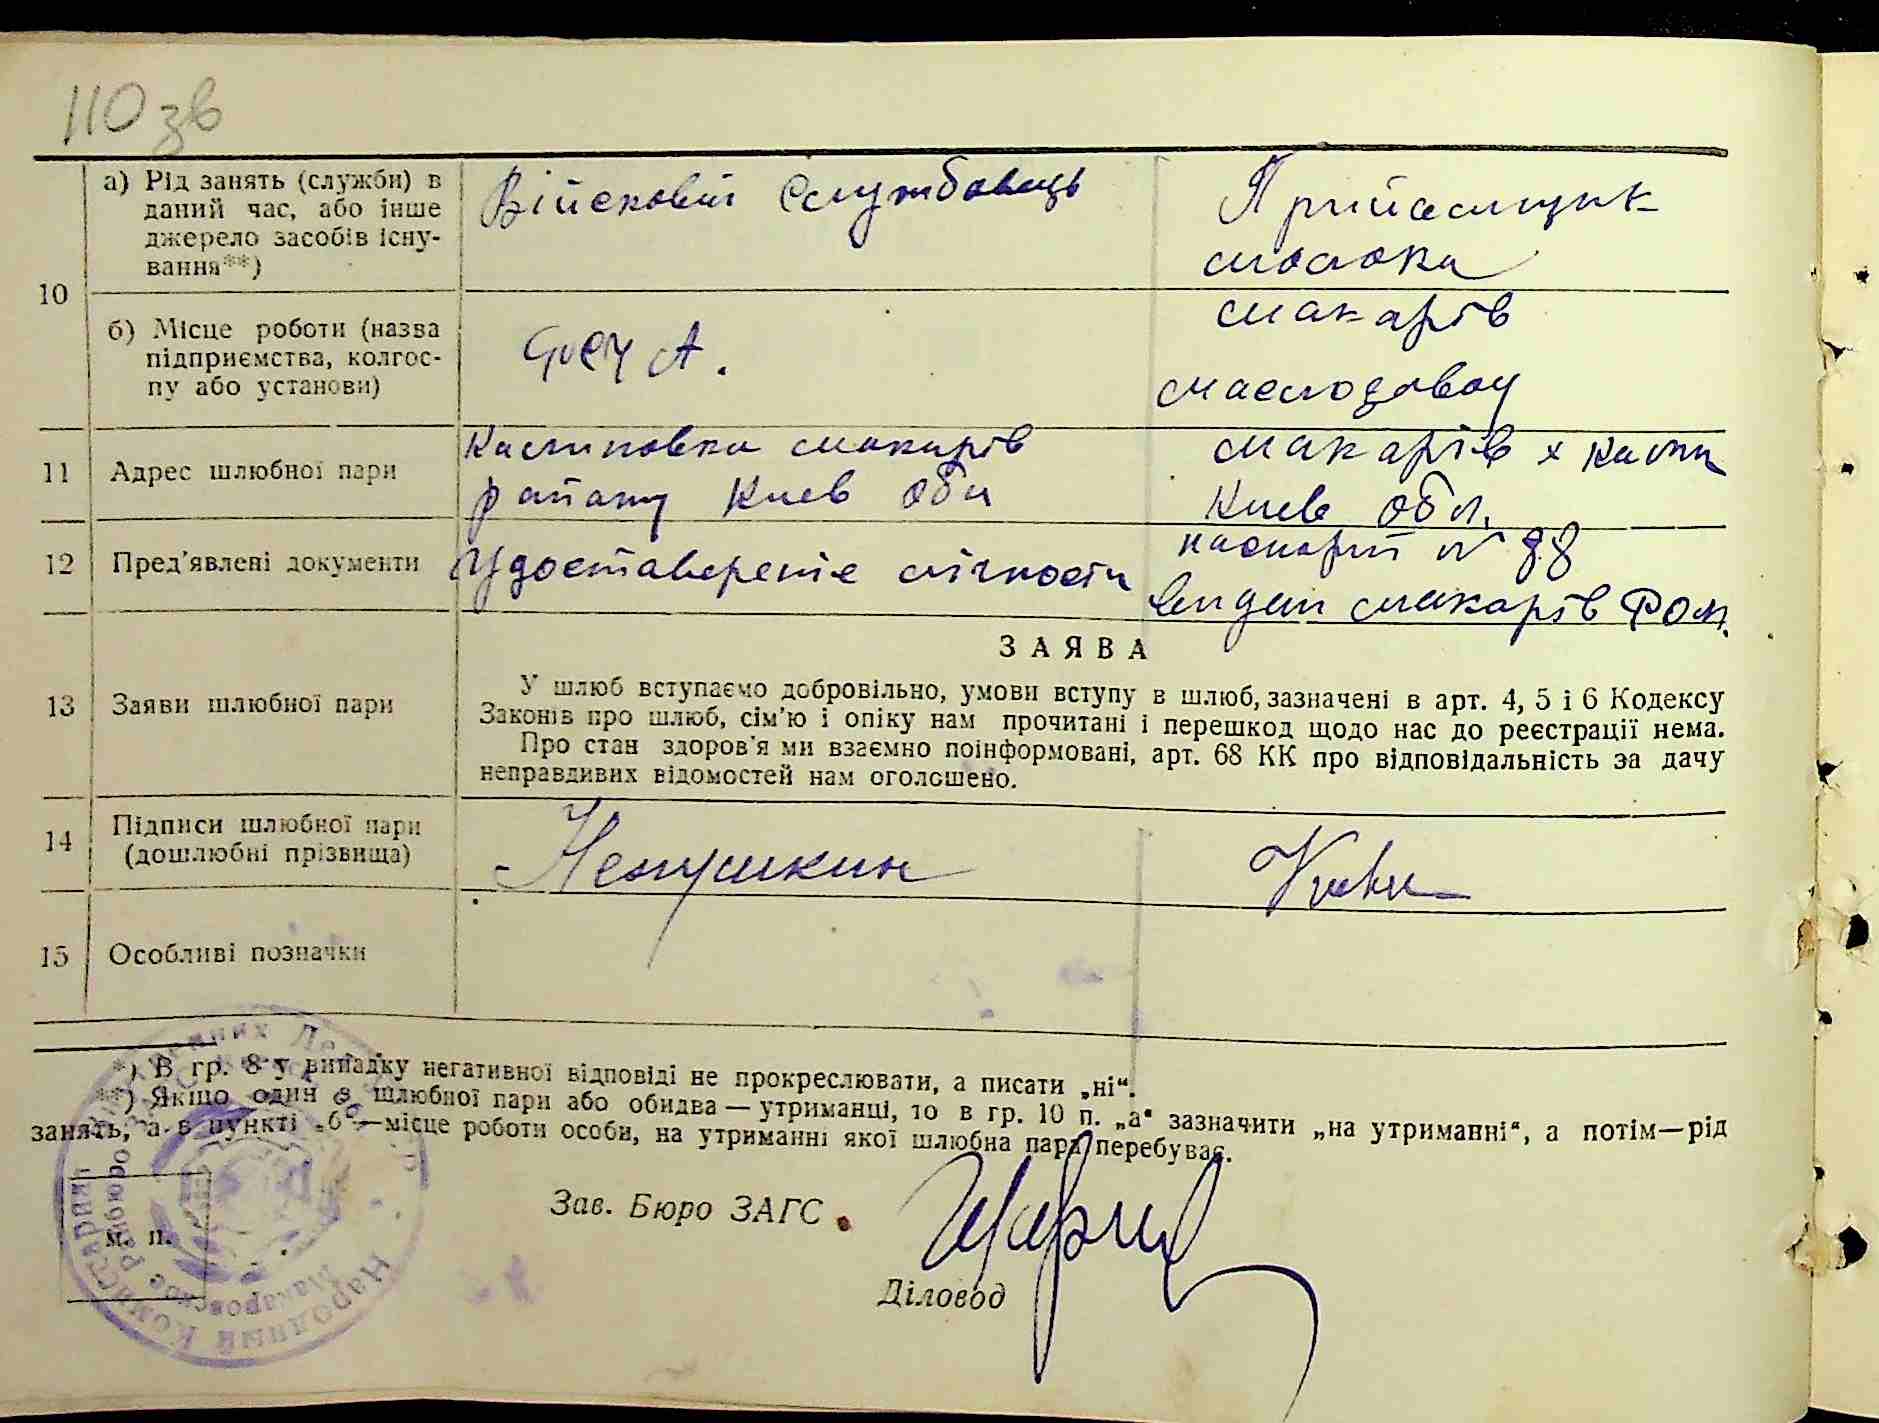 110 зв
10
а) Рід занять (служби) в
даний час, або інше
джерело засобів існу-
вання**)
Військовий службовець
Прийомщик
молока
б) Місце роботи (назва
підприємства, колгос-
пу або установи)
А.
макарів
маслозавод
11
Адрес шлюбної пари
макарів
району Киев обл
макарів
Киев обл.
12
Пред'явлені документи
Удоставерение лічности
паспорт № 88
макарів РОМ.
ЗАЯВА
13
Заяви шлюбної пари
У шлюб вступаємо добровільно, умови вступу в шлюб, зазначені в арт. 4, 5 і 6 Кодексу
Законів про шлюб, сім'ю і опіку нам прочитані і перешкод щодо нас до реєстрації нема.
Про стан здоров'я ми взаємно поінформовані, арт. 68 КК про відповідальність за дачу
неправдивих відомостей нам оголошено.
14
Підписи шлюбної пари
(дошлюбні прізвища)
15
Особливі позначки
*) В гр. 8 у випадку негативної відповіді не прокреслювати, а писати „ні“.
**) Якщо один з шлюбної пари або обидва — утриманці, то в гр. 10 п. „а“ зазначити „на утриманні“, а потім—рід
занять, а в пункті „б“—місце роботи особи, на утриманні якої шлюбна пара перебуває.
Зав. Бюро ЗАГС
Діловод
м. п.
Народный Комиссариат Внутренних Дел
Макаровское Райбюро